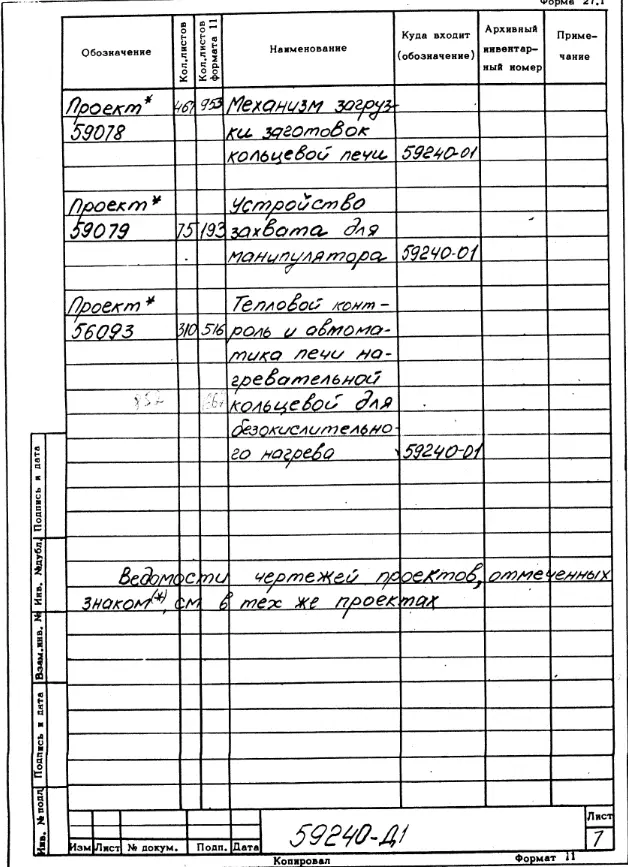 Форма 27.1
Обозначение Кол.листов Кол.листов формата 11 Наименование Куда входит (обозначение) Архивный инвентар-ный номер Приме-чание
Проект* 467 953 Механизм загруз-
59078 ки заготовок
кольцевой печи 59240-01
Проект* Устройство
59079 75 193 захвата для
манипулятора 59240-01
Проект* Тепловой конт-
56093 310 516 роль и автома-
тика печи на-
гревательной
852 кольцевой для
безокислительно-
го нагрева 59240-01
Ведомости чертежей проектов, отмеченных
знаком(*), см в тех же проектах
Инв. № подл Подпись и дата Взам.инв. № Инв. №дубл. Подпись и дата
59240-Д1
Лист
7
Изм Лист № докум. Подп. Дата
Копировал Формат 11